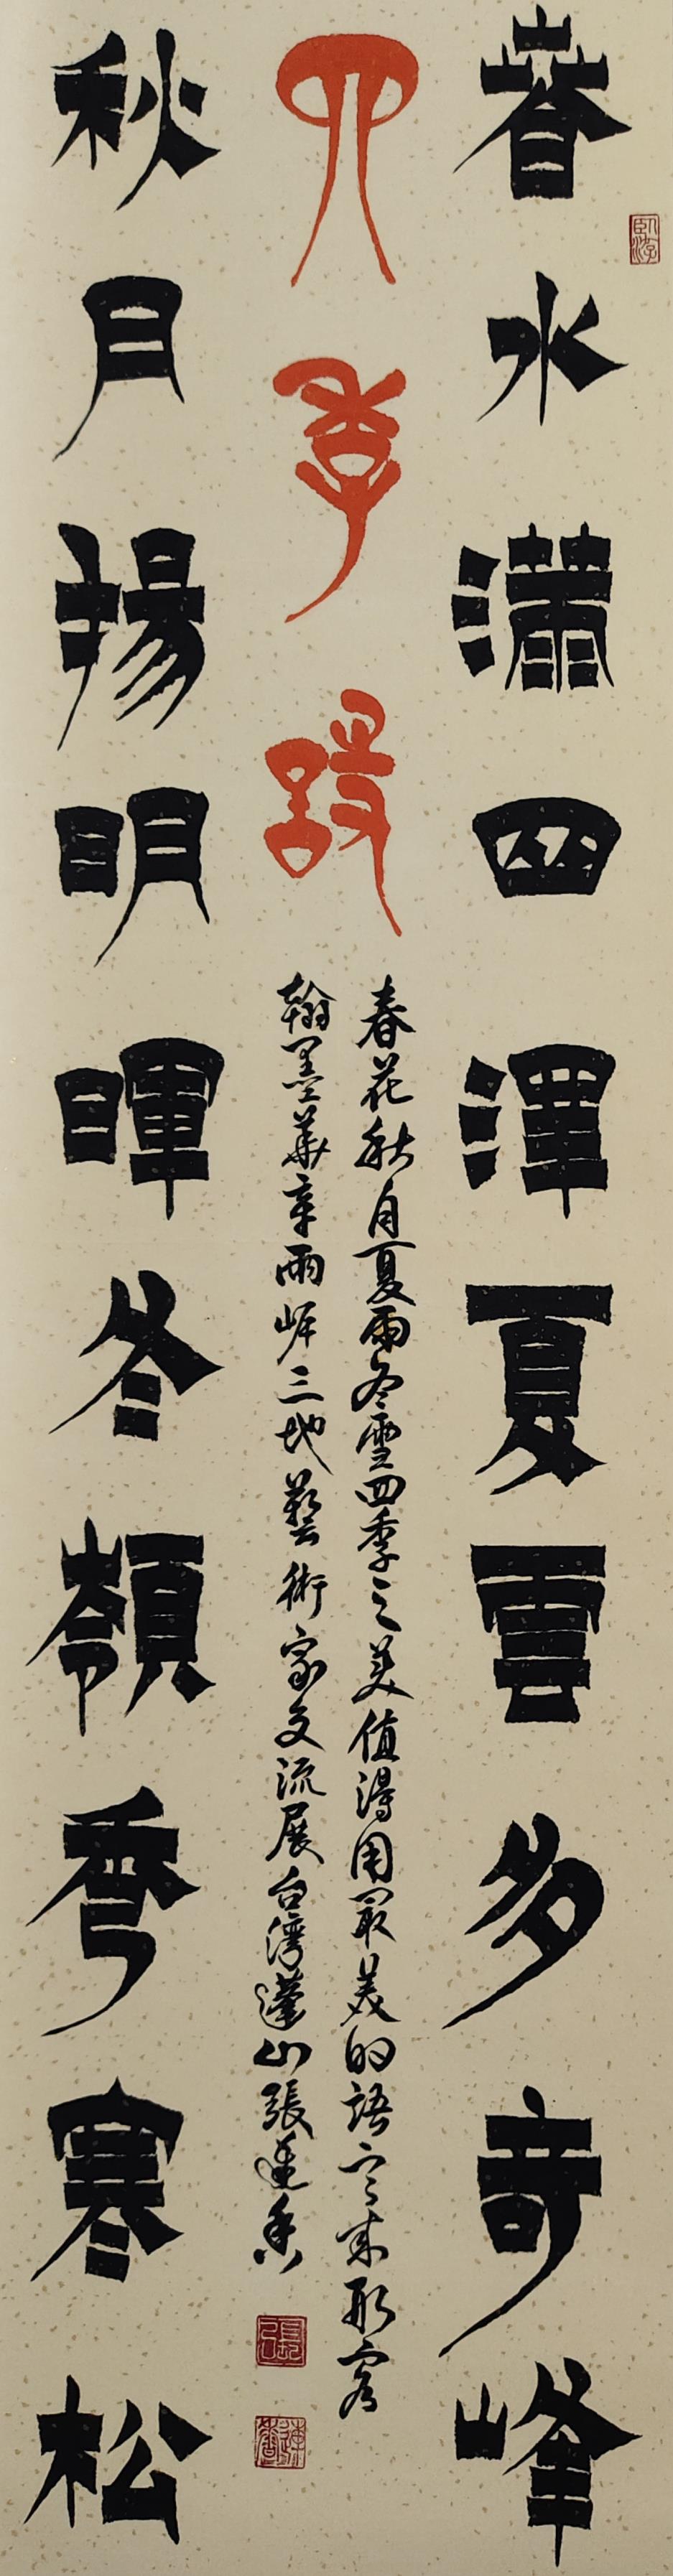 春水滿四澤夏雲多奇峰
臥游
四季頌
春花秋月夏雨冬雪四季之美值得用最美的語言來形容
翰墨華章兩岸三地藝術家交流展台灣蓬山張蓮香
張
蓮香
秋月揚明暉冬嶺秀寒松